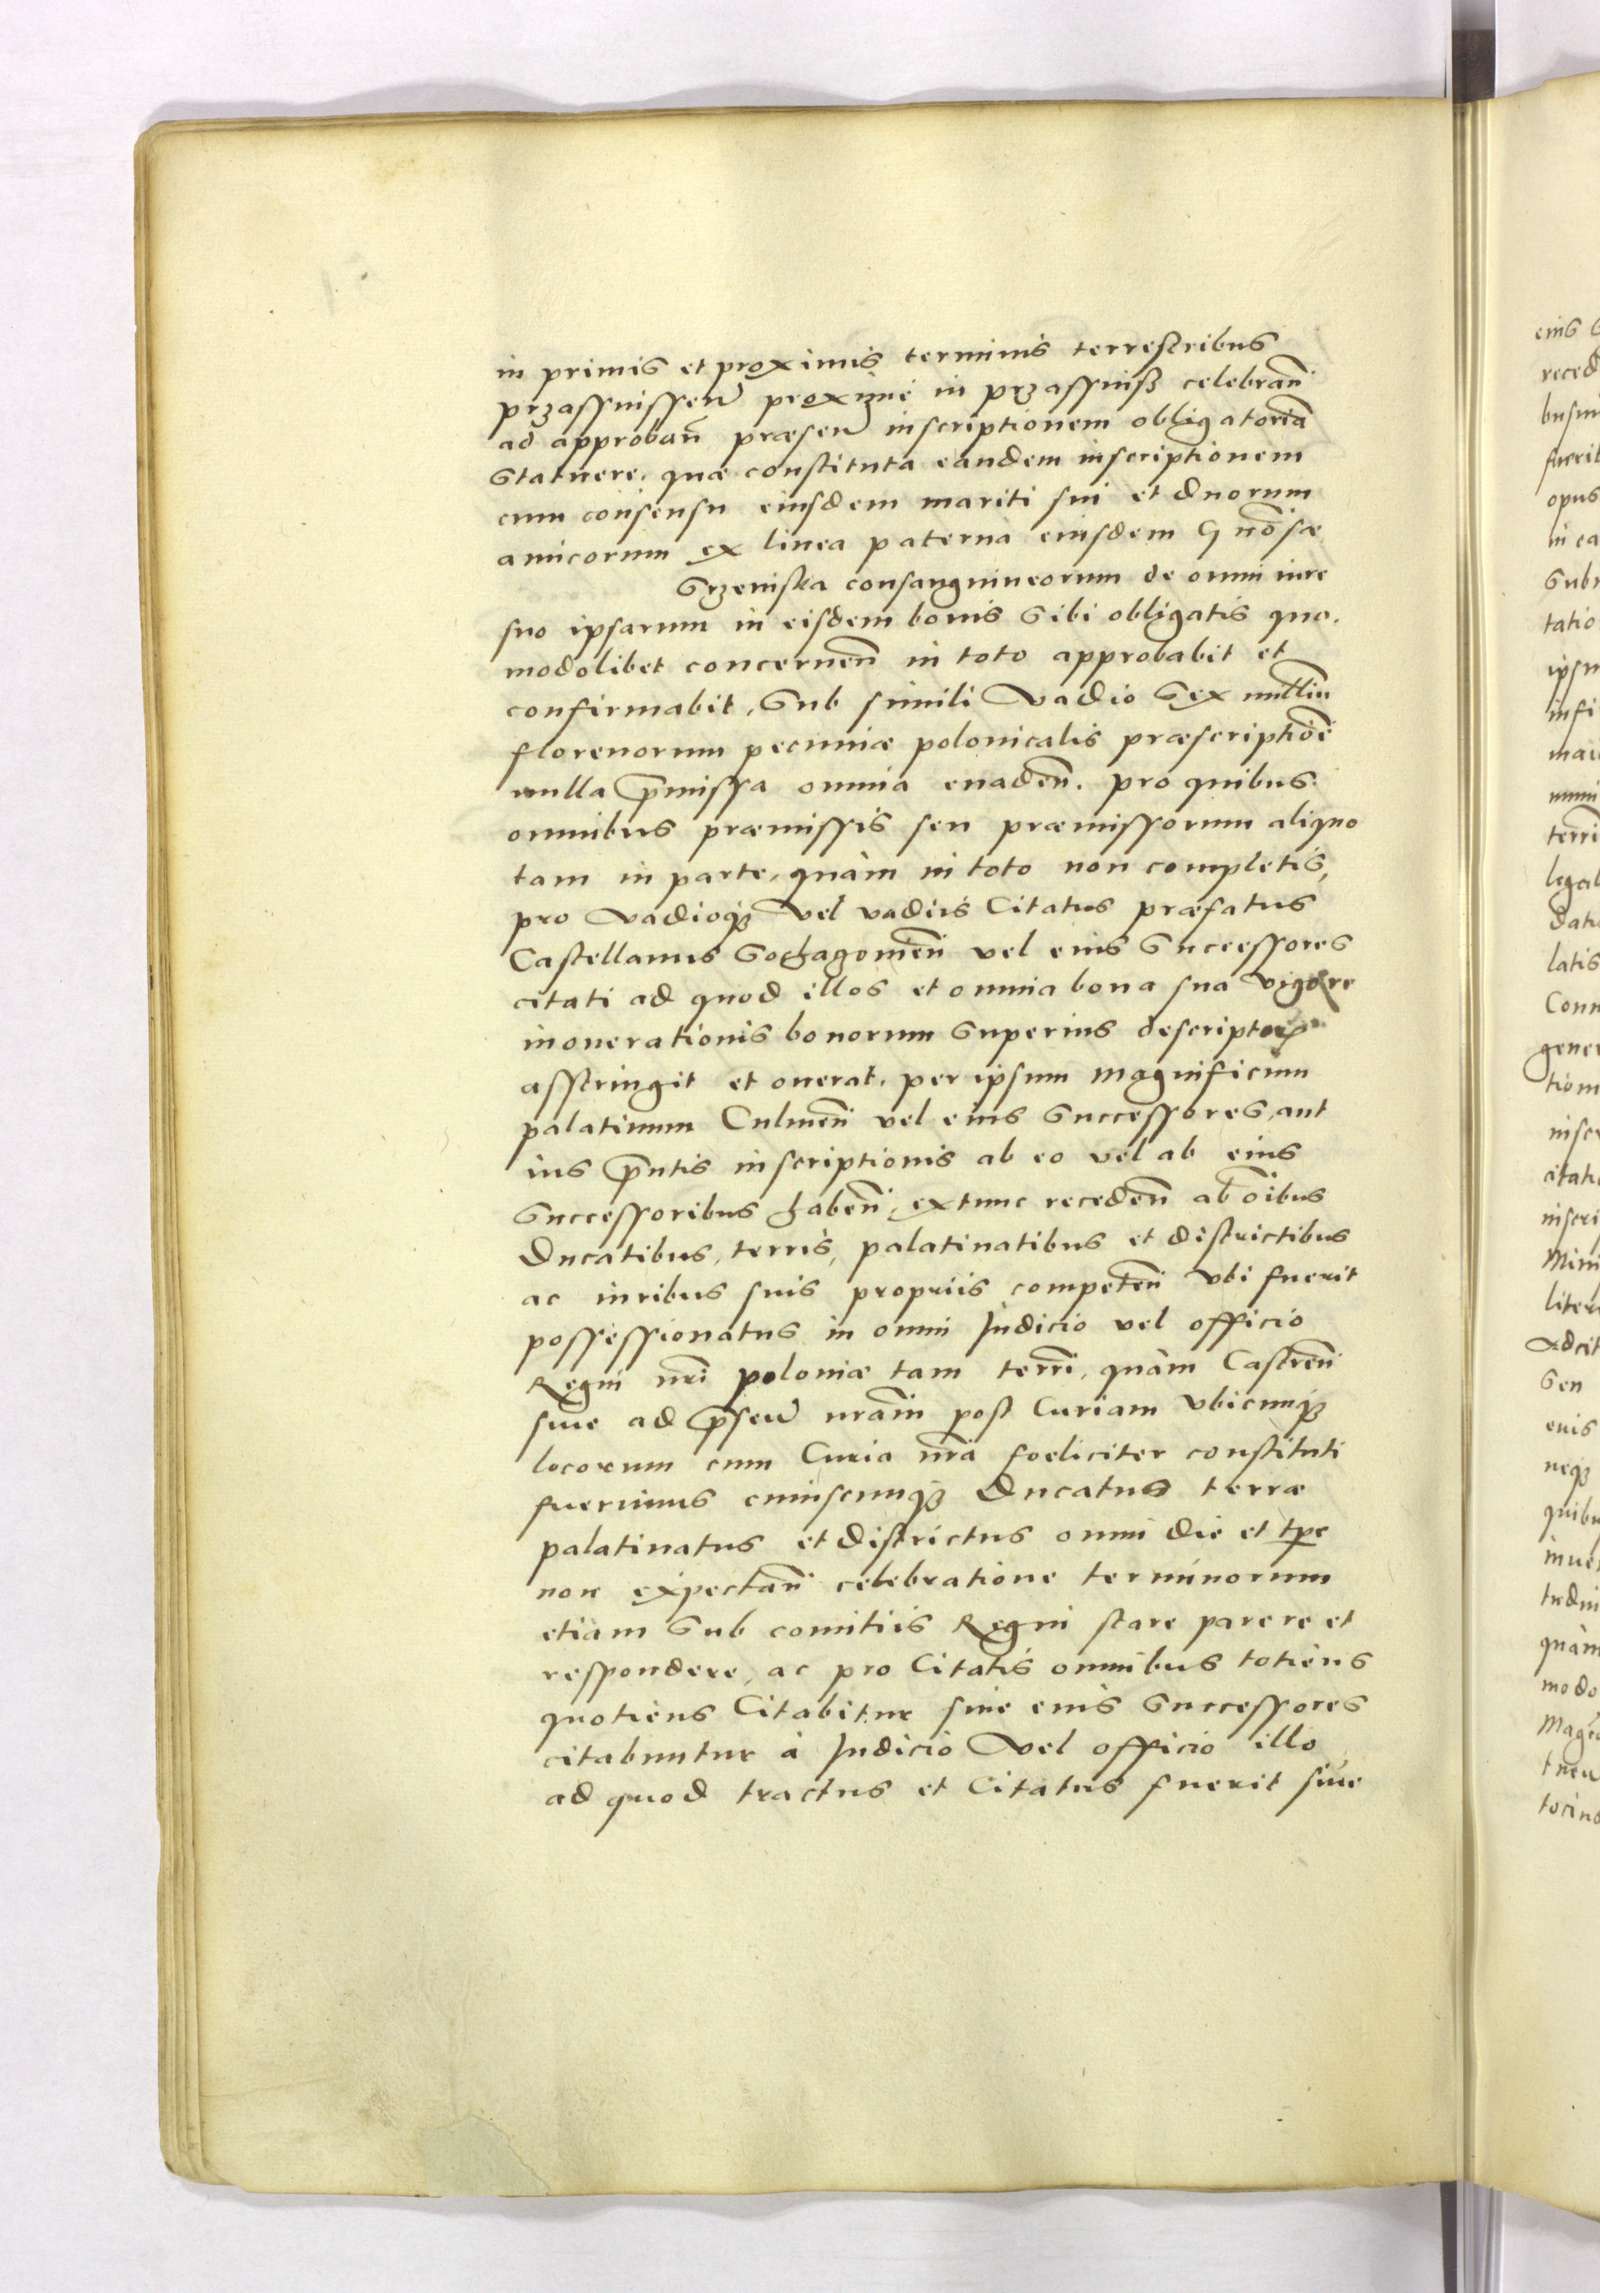 in primis et proximis terminis terrestribus
przassnissen̄ proximè in przassnisß celebran̄
ad approban̄ præsen̄ inscriptionem obligatoriā
Statuere, quæ constituta eandem inscriptionem
cum consensu eiusdem mariti sui et duorum
amicorum ex linea paterna eiusdem G nōsæ
Grzeniska consanguineorum de omni iure
suo ipsarum in eisdem bonis Sibi obligatis quo,
modolibet concernen̄ in toto approbabit et
confirmabit, Sub simili Vadio Sex milliū
florenorum pecuniæ polonicalis præscriptiōe
nulla p̄missa omnia euaden̄. pro quibus
omnibus præmissis seu præmissorum aliquo
tam in parte, quàm in toto non completis,
pro Vadioq3 Vel vadiis Citatus præfatus
Castellanus Sochagomen̄ vel eius Successores
citati ad quod illos et omnia bona sua vigore
inonerationis bonorum Superius descriptor
asstringit et onerat, per ipsum Magnificum
palatinum Culmen̄ vel eius Successores, aut
ius p̄ntis inscriptionis ab eo vel ab eius
Successoribus haben̄, extunc receden̄ ab oībus
Ducatibus, terris, palatinatibus et districtibus
ac iuribus suis propriis competen̄ Vbi fuerit
possessionatus in omni Judicio vel officio
Regni nr̄i poloniæ tam terrī, quàm Castren̄
siue ad p̄sen̄ nrām post Curiam Vbicunq3
locorum cum Curia nr̄a foeliciter constituti
fuerimus cuiuscunq3 Ducatus terræ
palatinatus et districtus omni die et tp̄e
non expectan̄ celebratione terminorum
etiam Sub comitiis Regni stare parere et
respondere, ac pro Citatis omnibus totiens
quotiens Citabitur siue eius Successores
citabuntur à Judicio Vel officio illo
ad quod tractus et Citatus fuerit siue